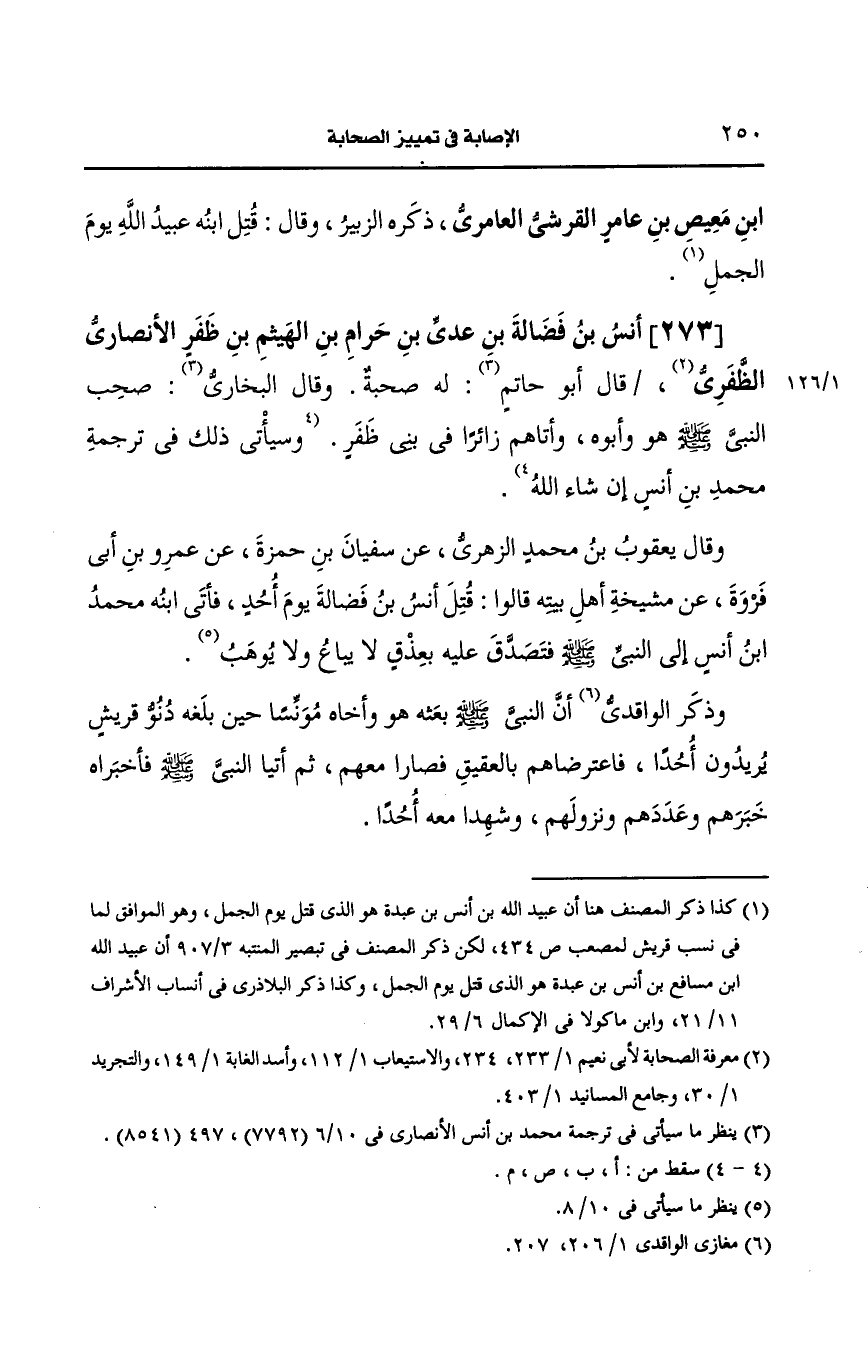 ٢٥٠ الإصابة فى تمييز الصحابة
ابنِ مَعِيصِ بنِ عامرٍ القرشىُّ العامرىُّ ، ذكَره الزبيرُ ، وقال : قُتِل ابنُه عبيدُ اللَّهِ يومَ
الجملِ(١) .
[٢٧٣] أنسُ بنُ فَضَالةَ بنِ عدىِّ بنِ حَرامِ بنِ الهَيثمِ بنِ ظَفَرٍ الأنصارىُّ
١٢٦/١ الظَّفَرِىُّ(٢) ، / قال أبو حاتمٍ(٣) : له صحبةٌ . وقال البخارىُّ(٣) : صحِب
النبىَّ ﷺ هو وأبوه ، وأتاهم زائرًا فى بنى ظَفَرٍ . (٤وسيأْتى ذلك فى ترجمةِ
محمدِ بنِ أنسٍ إن شاء اللهُ٤) .
وقال يعقوبُ بنُ محمدٍ الزهرىُّ ، عن سفيانَ بنِ حمزةَ ، عن عمرِو بنِ أبى
فَرْوَةَ ، عن مشيخةِ أهلِ بيتِه قالوا : قُتِلَ أنسُ بنُ فَضالةَ يومَ أُحُدٍ ، فأتَى ابنُه محمدُ
ابنُ أنسٍ إلى النبىِّ ﷺ فتَصَدَّقَ عليه بعِذْقٍ لا يباعُ ولا يُوهَبُ(٥) .
وذكَر الواقدىُّ(٦) أنَّ النبىَّ ﷺ بعَثه هو وأخاه مُوَنِّسًا حين بلَغه دُنُوُّ قريشٍ
يُريدُون أُحُدًا ، فاعترضاهم بالعقيقِ فصارا معهم ، ثم أتيا النبىَّ ﷺ فأخبَراه
خَبَرَهم وعَدَدَهم ونزولَهم ، وشهِدا معه أُحُدًا .
(١) كذا ذكر المصنف هنا أن عبيد الله بن أنس بن عبدة هو الذى قتل يوم الجمل ، وهو الموافق لما
فى نسب قريش لمصعب ص ٤٣٤، لكن ذكر المصنف فى تبصير المنتبه ٩٠٧/٣ أن عبيد الله
ابن مسافع بن أنس بن عبدة هو الذى قتل يوم الجمل ، وكذا ذكر البلاذرى فى أنساب الأشراف
٢١/١١، وابن ماكولا فى الإكمال ٢٩/٦.
(٢) معرفة الصحابة لأبى نعيم ٢٣٣/١، ٢٣٤، والاستيعاب ١١٢/١، وأسد الغابة ١٤٩/١، والتجريد
٣٠/١، وجامع المسانيد ٤٠٣/١.
(٣) ينظر ما سيأتى فى ترجمة محمد بن أنس الأنصارى فى ٦/١٠ (٧٧٩٢) ، ٤٩٧ (٨٥٤١) .
(٤ - ٤) سقط من : أ ، ب ، ص ، م .
(٥) ينظر ما سيأتى فى ٨/١٠.
(٦) مغازى الواقدى ٢٠٦/١، ٢٠٧.